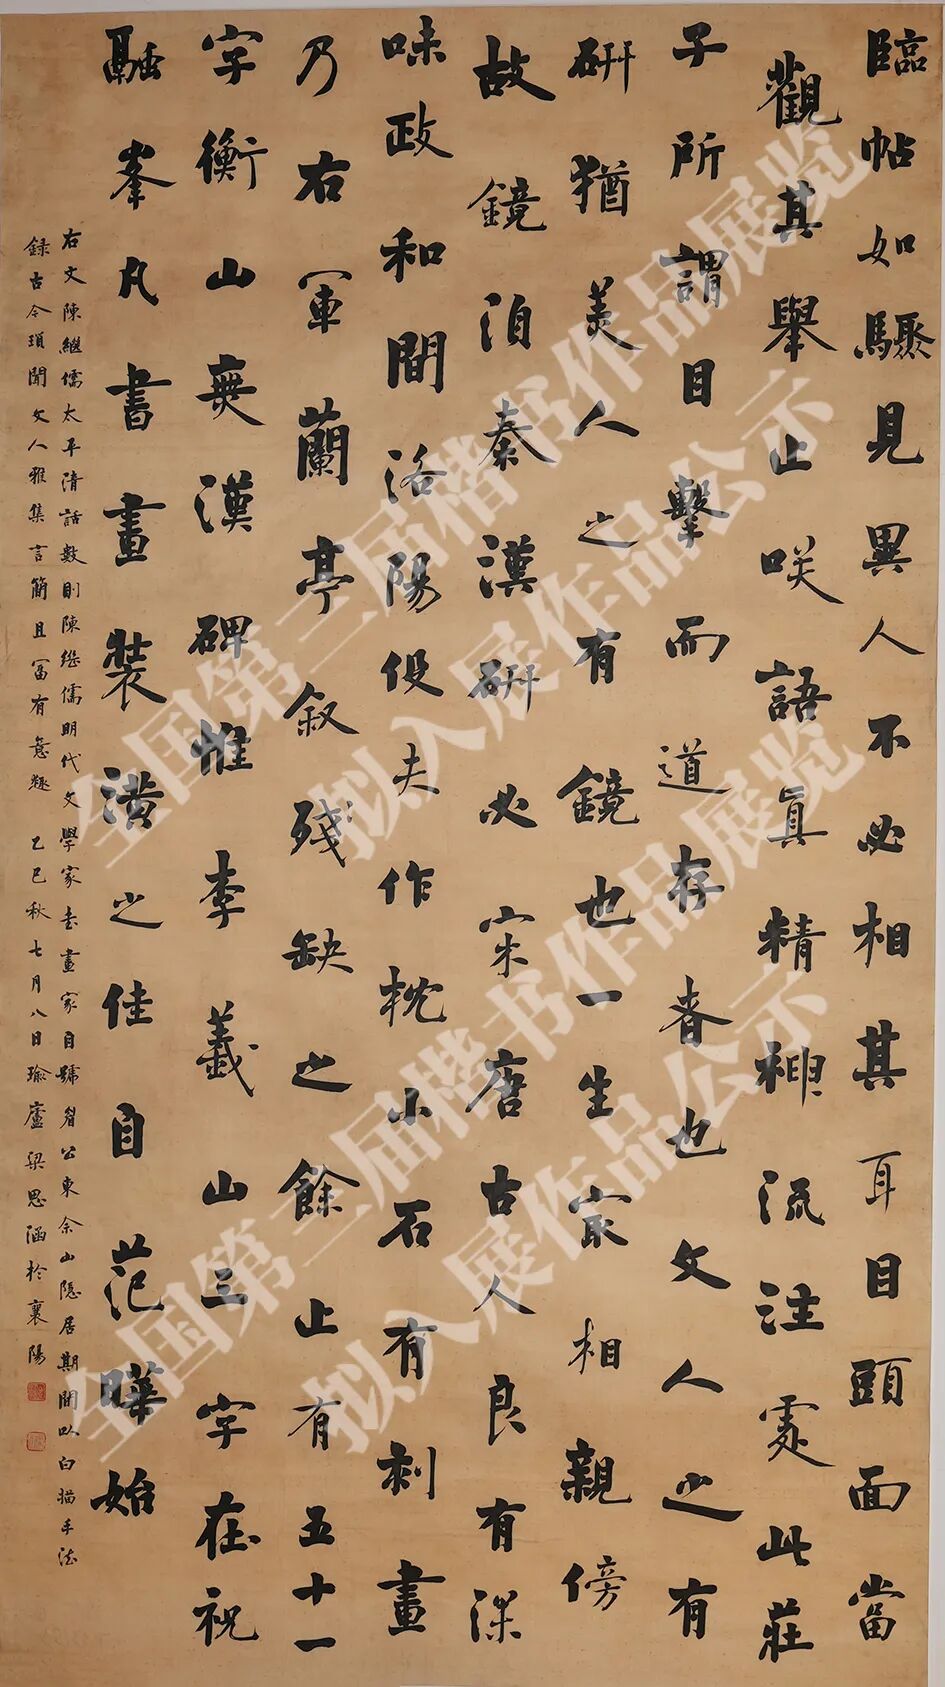 臨帖如驟見異人不必相其耳目頭面當
觀其舉止咲語真精神流注處此莊
子所謂目擊而道存者也文人之有
研猶美人之有鏡也一生冣相親傍
故鏡須秦漢研必宋唐古人良有深
味政和間洛陽役夫作枕小石有刻畫
乃右軍蘭亭叙残缺之餘止有五十一
字衡山無漢碑惟李義山三字在祝
融峯凡書畫裝潢之佳自范曄始
右文陳繼儒太平清話數則陳繼儒明代文學家書畫家自號眉公東佘山隱居期間以白描手法
録古今瑣聞文人雅集言簡且富有意趣 乙巳秋七月八日瑜廬梁思涵於襄陽
全国第三届楷书作品展览
拟入展作品公示
全国第三届楷书作品展览
拟入展作品公示